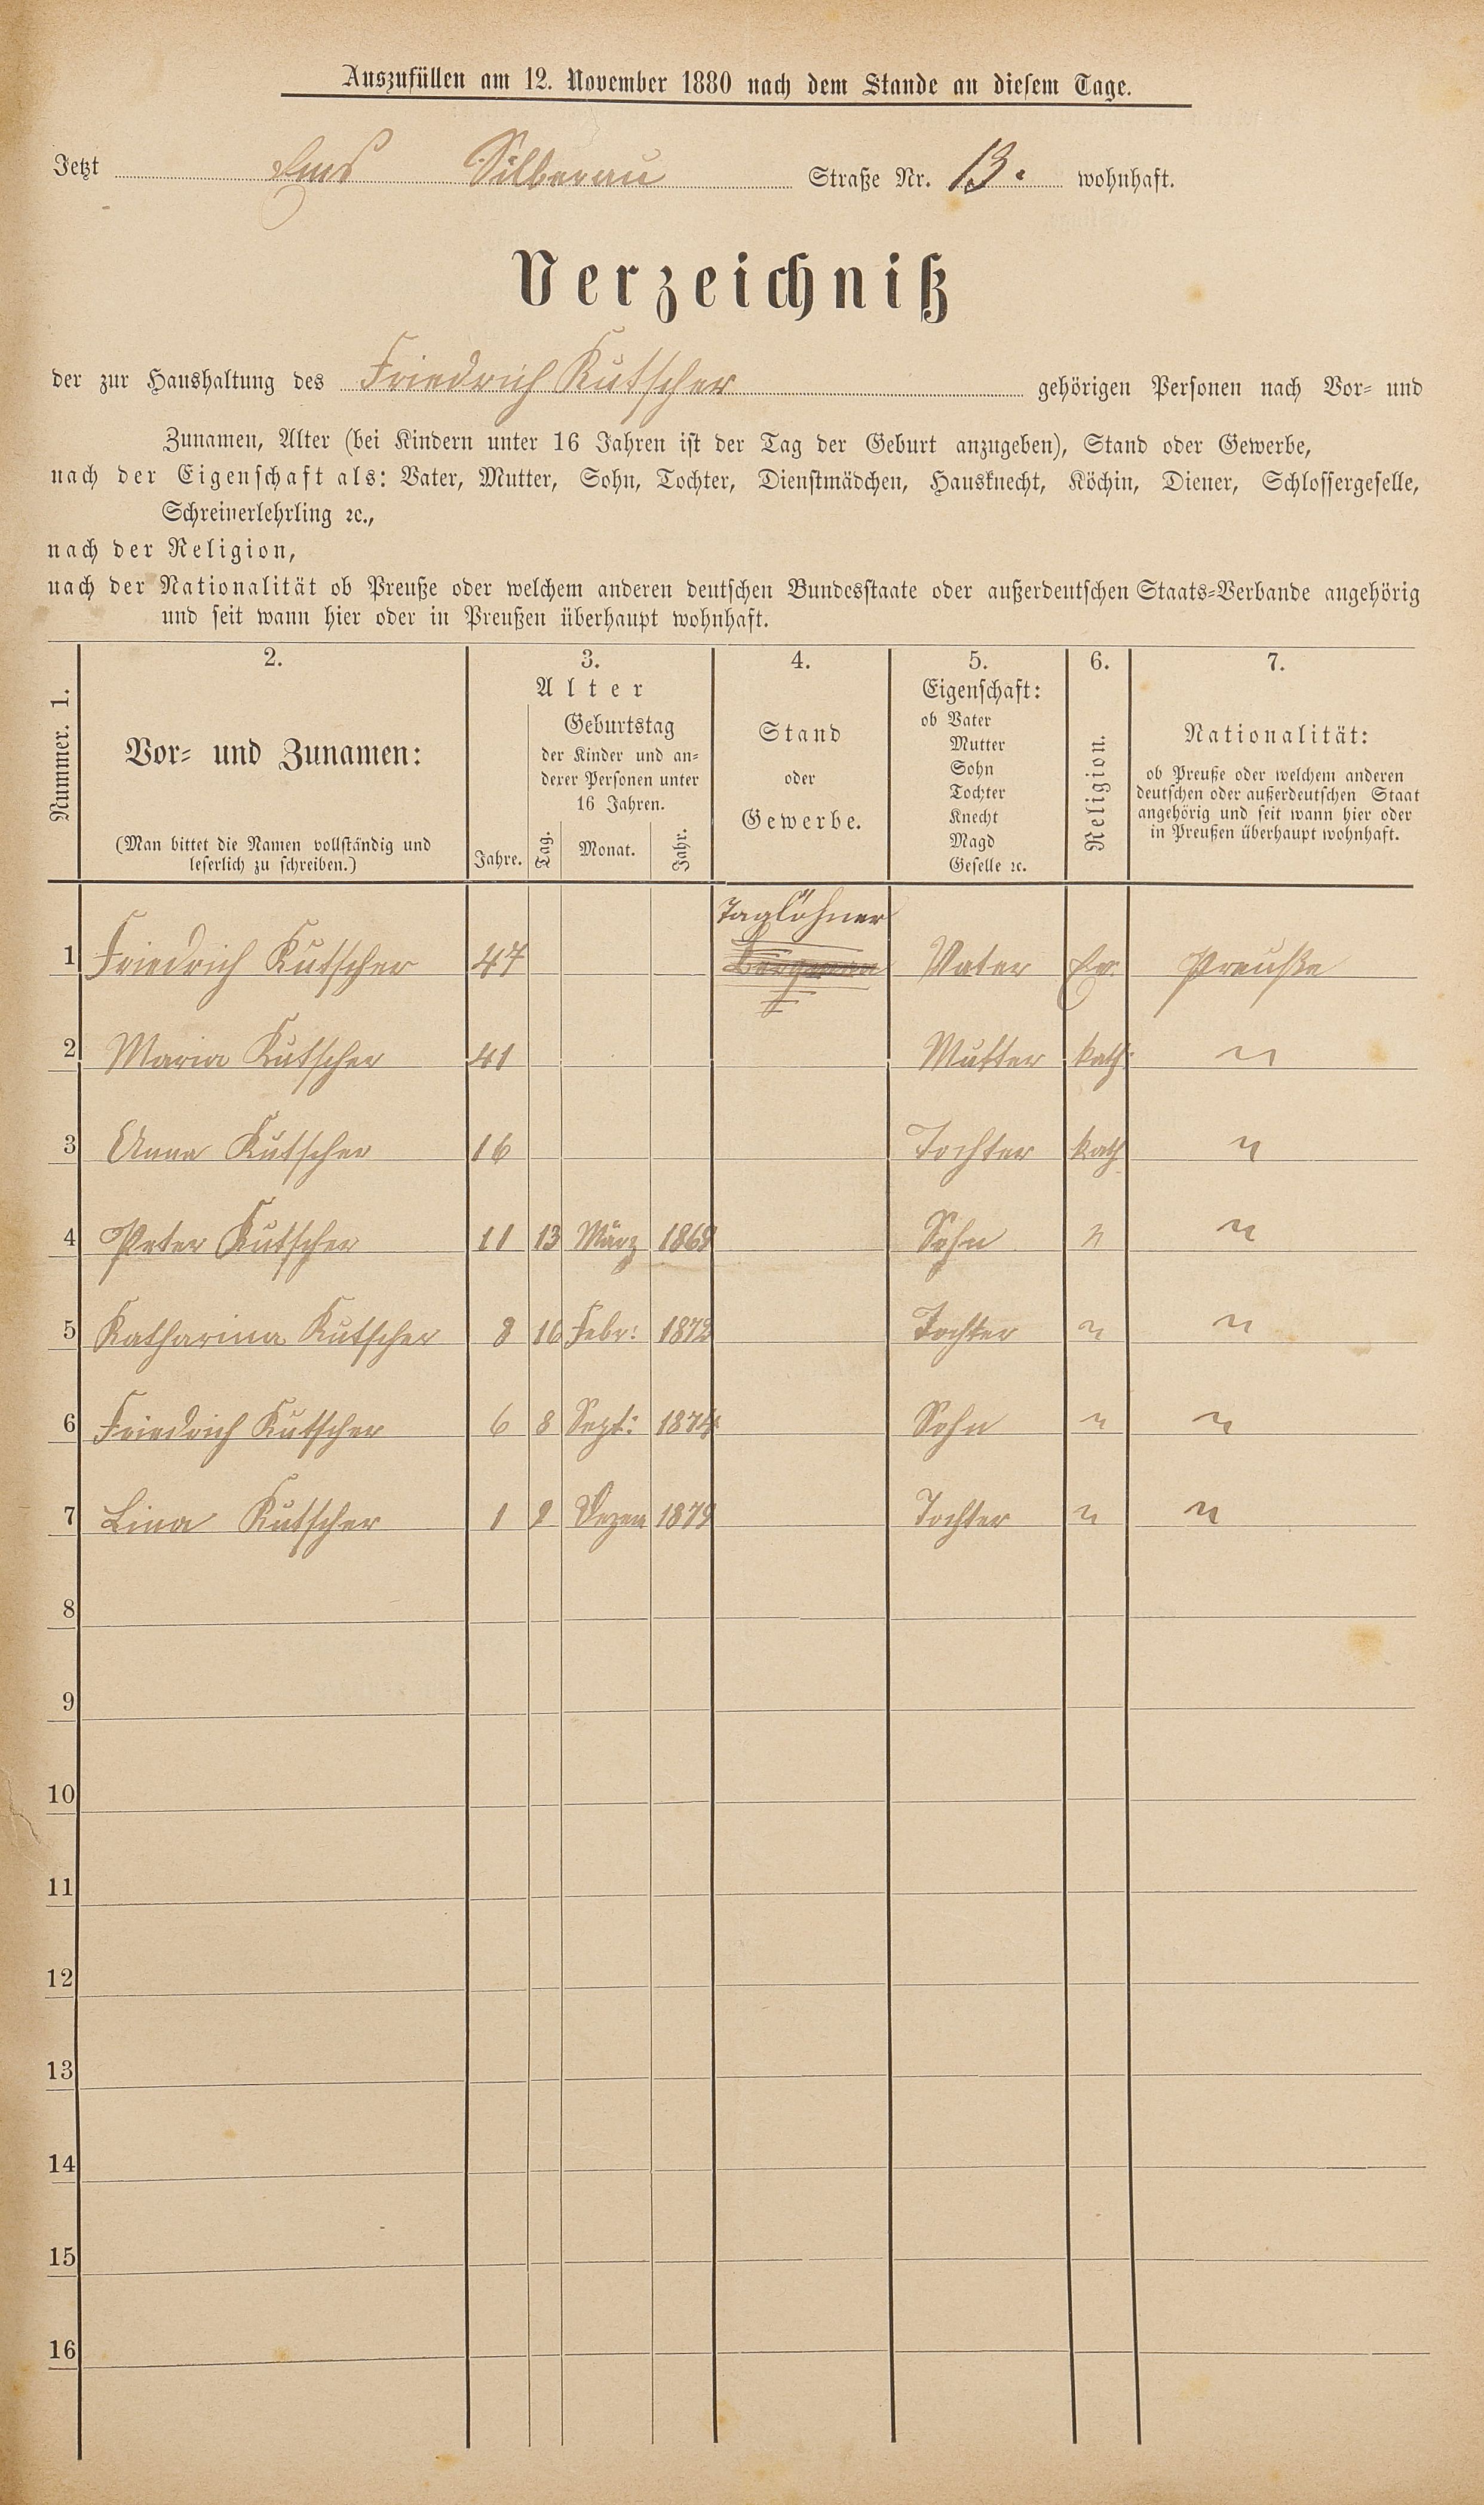 Auszufüllen am 12. November 1880 nach dem Stande an diesem Tage.
Jetzt Ems Silberau Straße Nr. 13. wohnhaft.
Verzeichniß
der zur Haushaltung des Friedrich Kutscher gehörigen Personen nach Vor- und
Zunamen, Alter (bei Kindern unter 16 Jahren ist der Tag der Geburt anzugeben), Stand oder Gewerbe,
nach der Eigenschaft als: Vater, Mutter, Sohn, Tochter, Dienstmädchen, Hausknecht, Köchin, Diener, Schlossergeselle,
Schreinerlehrling ꝛc.,
nach der Religion,
nach der Nationalität ob Preuße oder welchem anderen deutschen Bundesstaate oder außerdeutschen Staats-Verbande angehörig
und seit wann hier oder in Preußen überhaupt wohnhaft.
Nummer. 1.
2.
Vor- und Zunamen:
(Man bittet die Namen vollständig und
leserlich zu schreiben.)
3.
Alter
Jahre.
Geburtstag
der Kinder und an-
derer Personen unter
16 Jahren.
Tag.
Monat.
Jahr.
4.
Stand
oder
Gewerbe.
5.
Eigenschaft:
ob Vater
Mutter
Sohn
Tochter
Knecht
Magd
Geselle ꝛc.
6.
Religion.
7.
Nationalität:
ob Preuße oder welchem anderen
deutschen oder außerdeutschen Staat
angehörig und seit wann hier oder
in Preußen überhaupt wohnhaft.
Taglöhner
1 Friedrich Kutscher 47 Bergmann Vater Ev. Preuße
2 Maria Kutscher 41 Mutter kath: "
3 Anna Kutscher 16 Tochter kath "
4 Peter Kutscher 11 13 März Sohn " "
5 Katharina Kutscher 8 16 Febr: 1872 Tochter " "
6 Friedrich Kutscher 6 8 Sept: 1874 Sohn " "
7 Lina Kutscher 1 Dezem 1879 Tochter " "
8
9
10
11
12
13
14
15
16